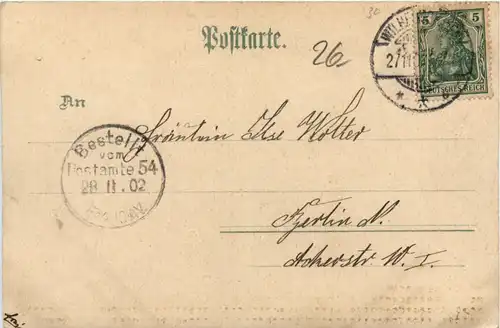 30
Postkarte.
26
5
DEUTSCHES REICH
27/11
An
Fräulein Else Wolter
Bestellt
vom
Postamte 54
28 11. 02
Berlin N.
Ackerstr